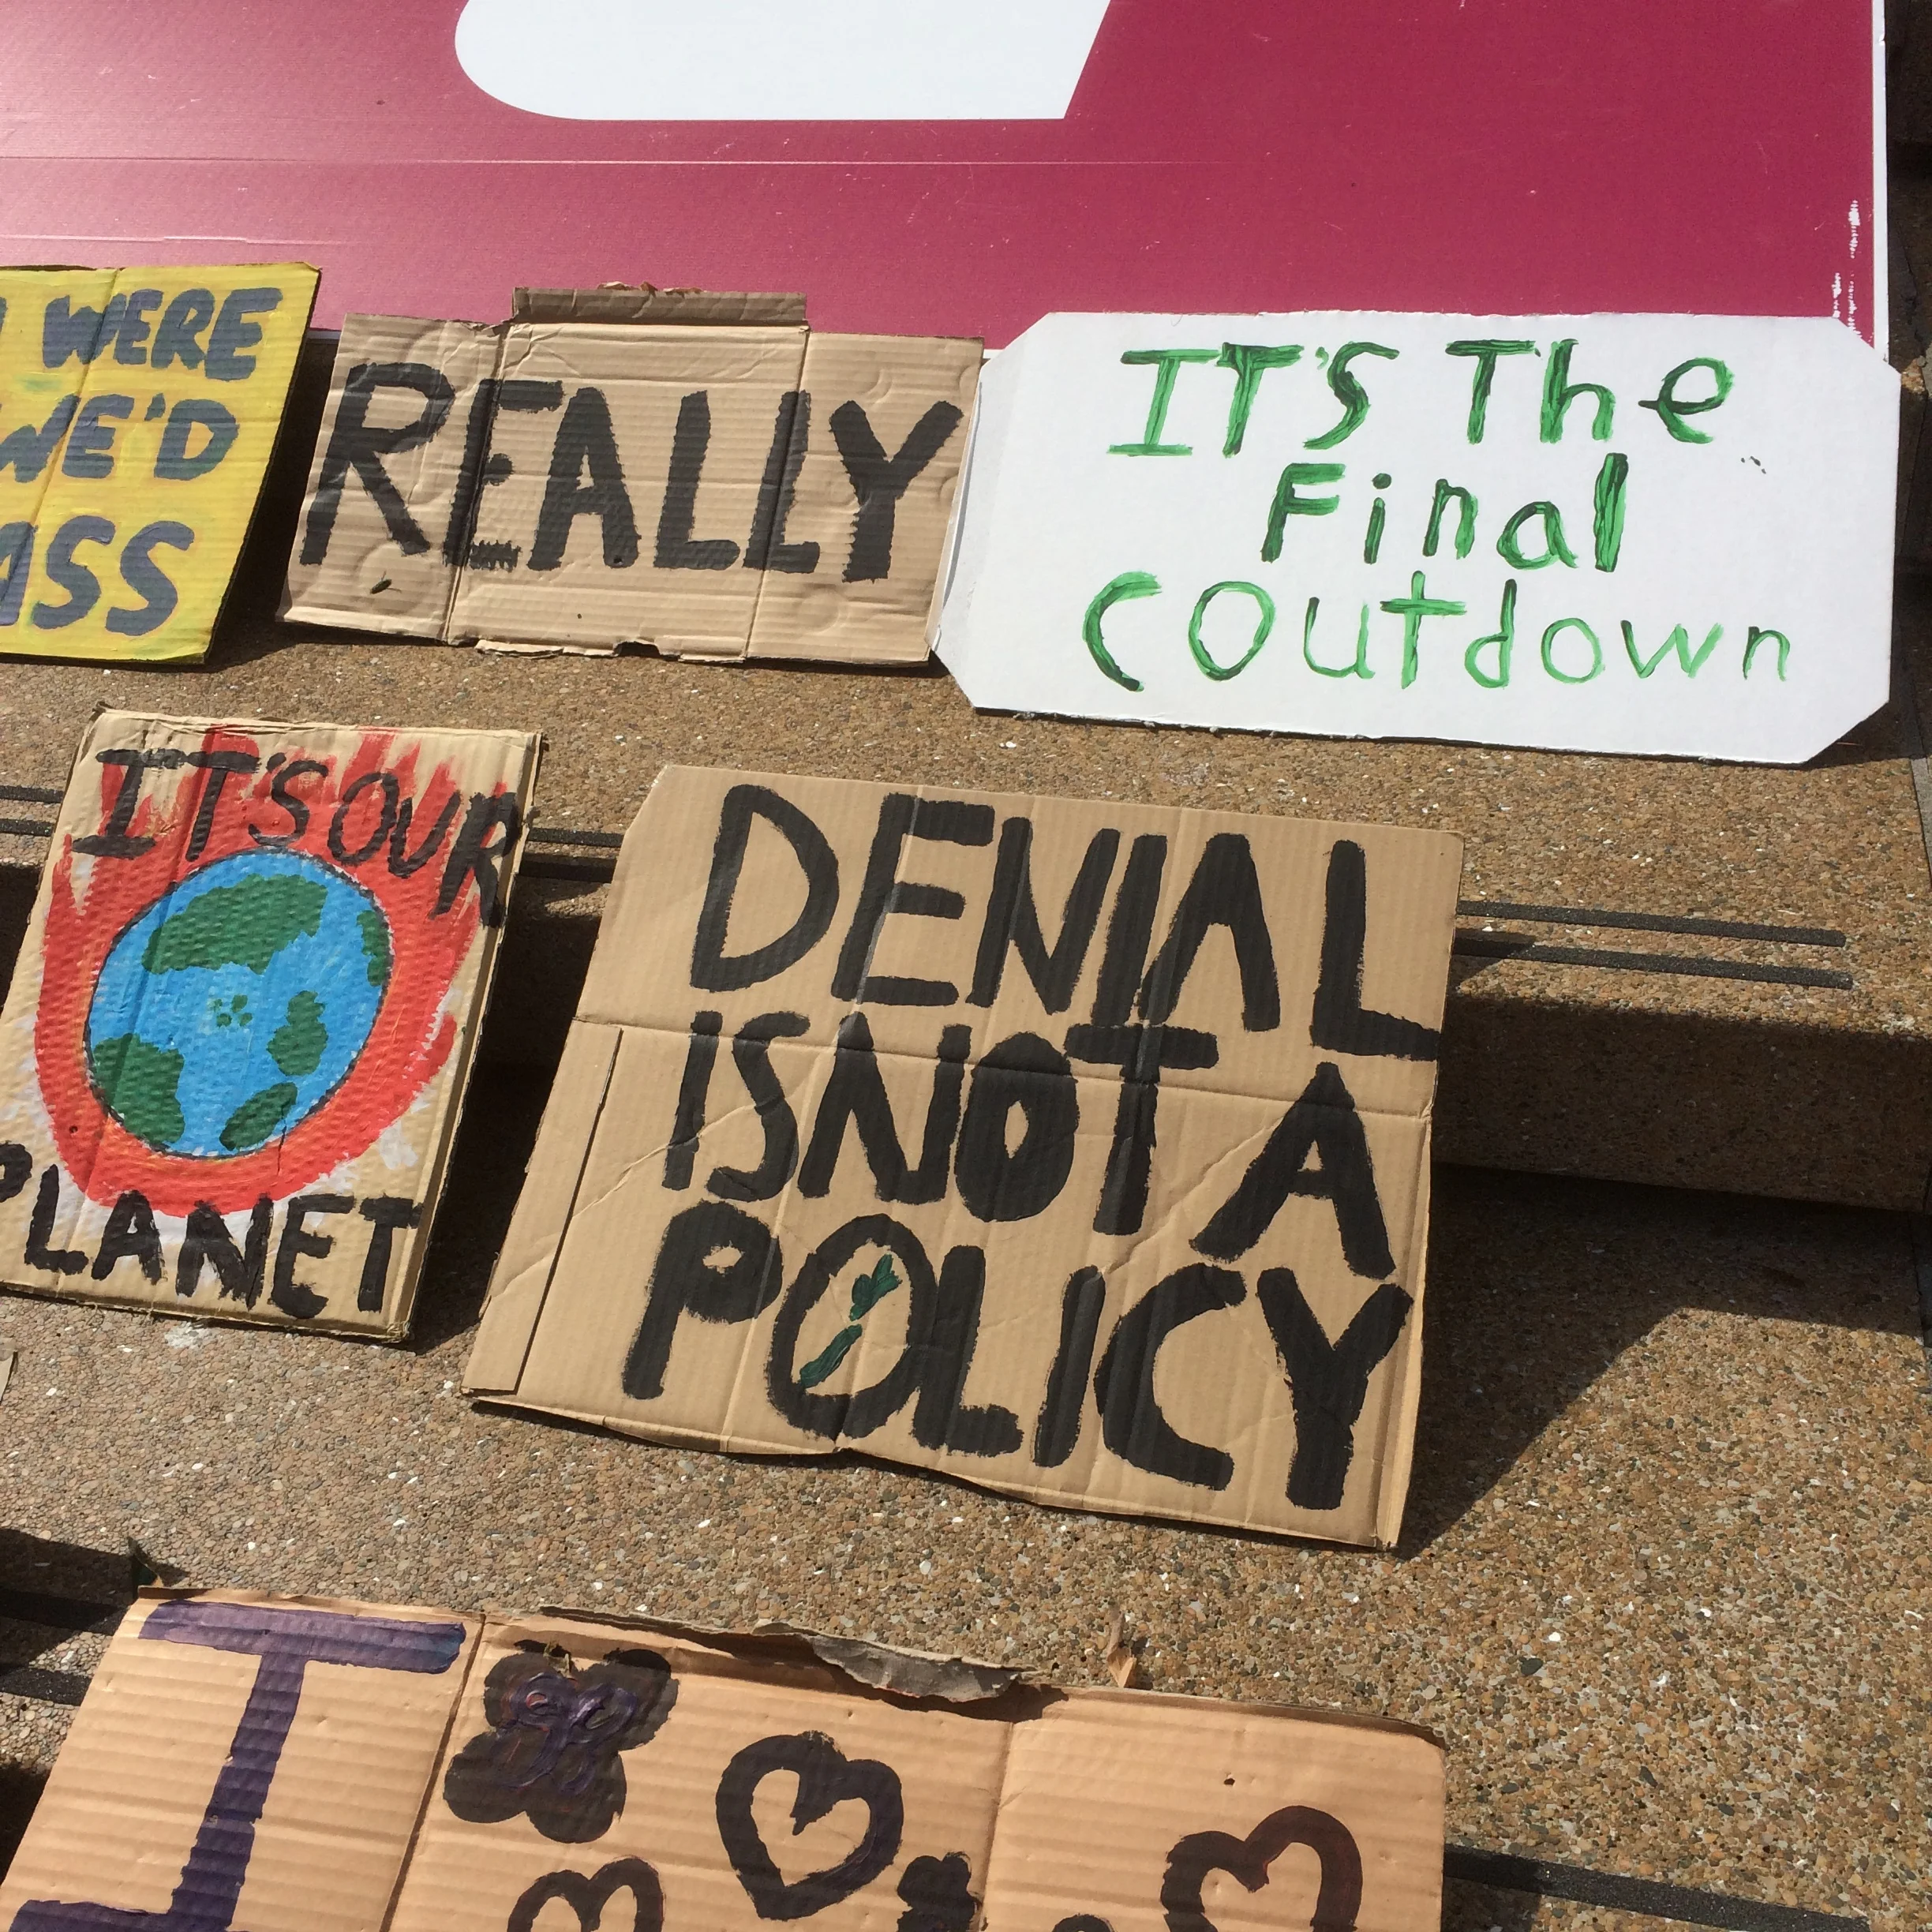 WERE
WE'D
ASS
REALLY
IT'S The
Final
COUTdown
IT'S OUR
PLANET
DENIAL
IS NOT A
POLICY
I